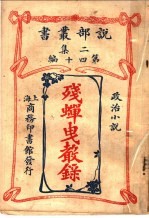 說部叢書
二集
第四十編
政治小說
殘蟬曳聲錄
上海商務印書館發行